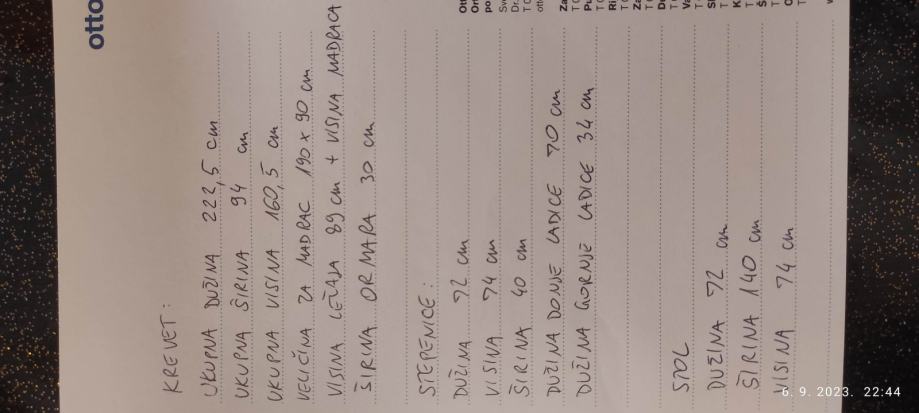 otto
KREVET:
UKUPNA DUŽINA 222,5 cm
UKUPNA ŠIRINA 94 cm
UKUPNA VISINA 160,5 cm
VELIČINA ZA MADRAC 190 x 90 cm
VISINA LEŽAJA 89 cm + VISINA MADRACA
ŠIRINA ORMARA 30 cm
STEPENICE:
DUŽINA 72 cm
VISINA 74 cm
ŠIRINA 40 cm
DUŽINA DONJE LADICE 70 cm
DUŽINA GORNJE LADICE 34 cm
STOL
DUŽINA 72 cm
ŠIRINA 140 cm
VISINA 74 cm
6. 9. 2023. 22:44